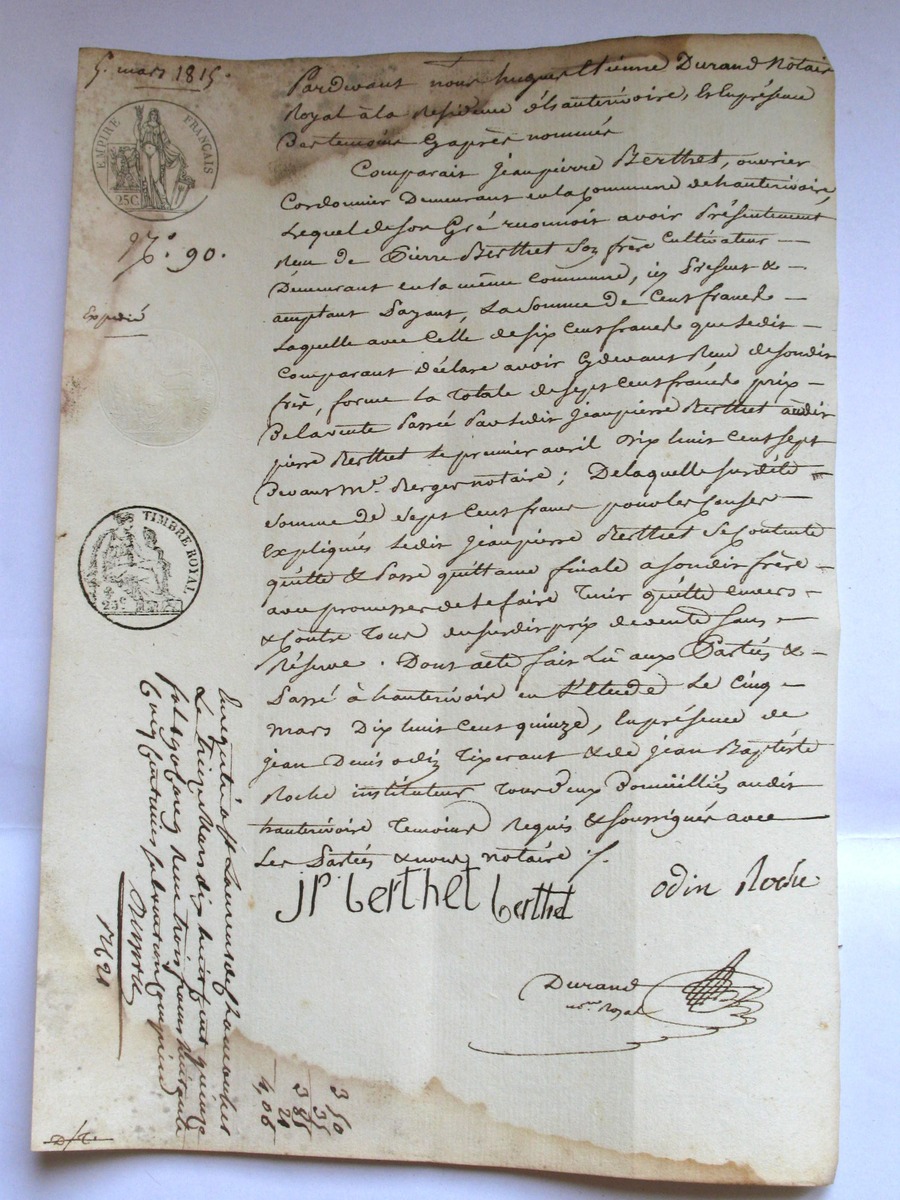 5. mars 1815.
EMPIRE FRANÇAIS
25C
N°. 90.
Expedié
TIMBRE ROYAL
25c
Pardevant nous hugues Etienne Durand Notaire
Royal à la Residence d'hauterivoire, En présence
Des temoins Cyaprès nommés
Comparait Jeanpierre Berthet, ouvrier
Cordonnier Demeurant en la Commune de hauterivoire,
Lequel de son Gré reconnoit avoir Présentement
Reçu de Pierre Berthet Son frère Cultivateur
Demeurant en la même Commune, icy Présent &
acceptant Payant, La Somme de Cent francs
Laquelle avec Celle de six Cent francs que Ledit
Comparant Déclare avoir Cydevant Reçu de sondit
frère, forme la Totale de sept Cent francs prix
De la vente Passée Par Ledit Jeanpierre Berthet audit
pierre Berthet Le premier avril Dix huit Cent sept
Devant Me. Berger notaire ; De laquelle susdite
Somme de Sept Cent francs pour les Causes
Expliqués Ledit Jeanpierre Berthet Se Contente
quitte & Passe quittance finale a sondit frère
avec promesse de le faire Tenir quitte envers
& Contre Tous du susdit prix de vente Sans
Réserve . Dont acte fait Lu aux Parties &
Passé à hauterivoire en L'Etude Le Cinq
Mars Dix huit Cent quinze, En présence de
Jean Denis odin Tixerant & de Jean Baptiste
Roche instituteur Tous Deux Domiciliés audit
hauterivoire Temoins Requis & soussignés avec
Les Parties & nous notaire
Jp berthet berthet
odin Roche
Durand
nore Royal
Enregistré à St Laurent de chamousset
Le treize Mars dix huit cent quinze
reçu trois francs cinquante
3 50
35
3 85
21
4,06